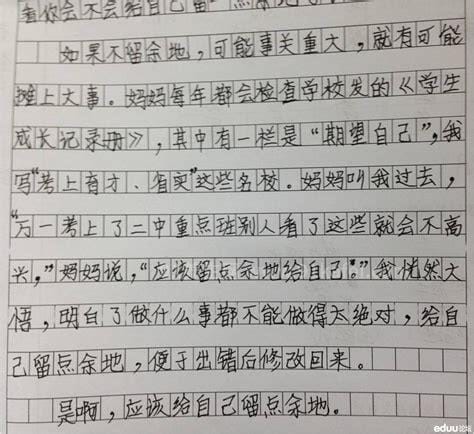 看你会不会给自己留
如果不留余地，可能事关重大，就有可能
摊上大事。妈妈每年都会检查学校发的《学生
成长记录册》，其中有一栏是“期望自己”，我
写“考上育才、省实”这些名校。妈妈叫我过去，
“万一考上了二中重点班别人看了这些就会不高
兴，”妈妈说，“应该留点余地给自己。”我恍然大
悟，明白了做什么事都不能做得太绝对，给自
己留点余地，便于出错后修改回来。
是啊，应该给自己留点余地。
eduu论坛